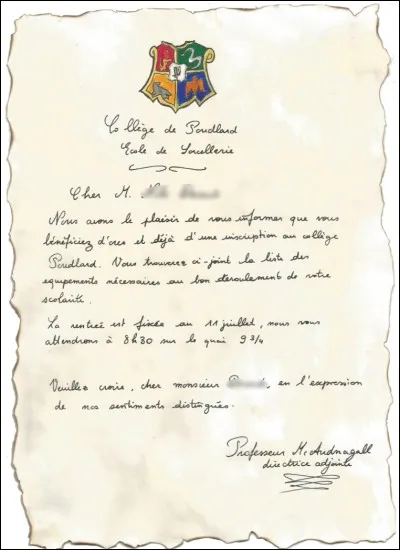 Collège de Poudlard
Ecole de Sorcellerie
Cher M.
Nous avons le plaisir de vous informer que vous
bénéficiez d'ores et déjà d'une inscription au collège
Poudlard. Vous trouverez ci-joint la liste des
equipements nécessaires au bon déroulement de votre
scolarité.
La rentrée est fixée au 11 juillet, nous vous
attendrons à 8h30 sur le quai 9 3/4
Veuillez croire, cher monsieur , en l'expression
de nos sentiments distingués.
Professeur Mc Audnagall
directrice adjointe